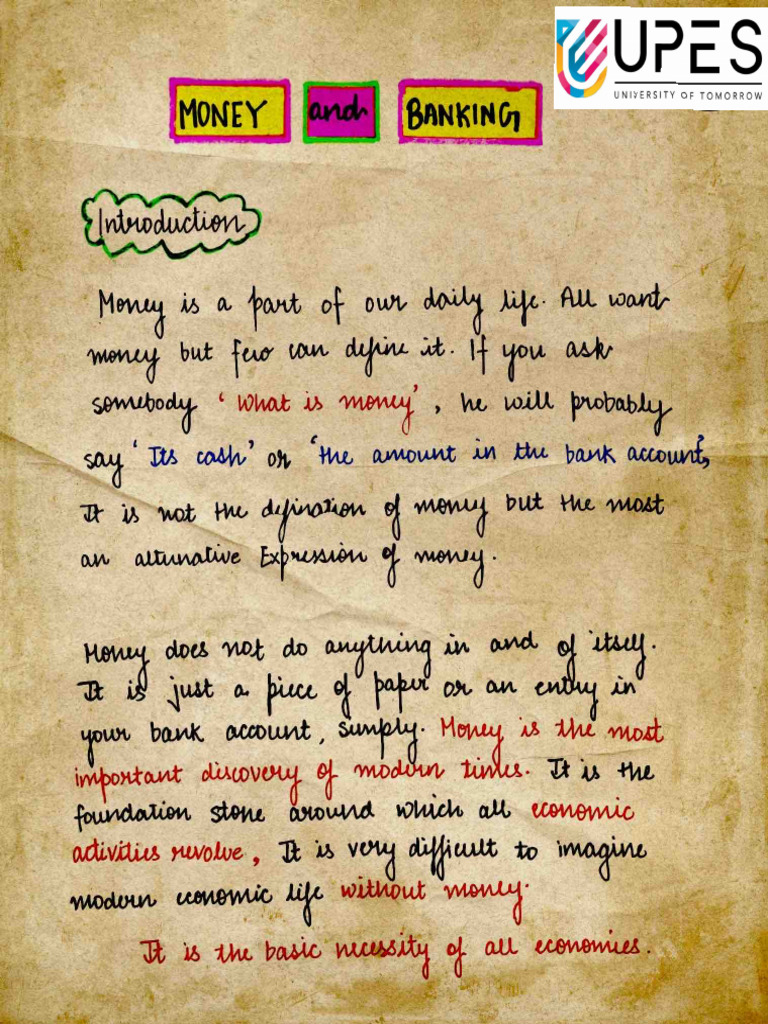 UPES
UNIVERSITY OF TOMORROW
MONEY and BANKING
Introduction
Money is a part of our daily life. All want
money but few can define it. If you ask
somebody 'What is money', he will probably
say 'Its cash' or 'the amount in the bank account',
It is not the defination of money but the most
an alturnative Expression of money.
Money does not do anything in and of itself.
It is just a piece of paper or an entry in
your bank account, simply. Money is the most
important discovery of modern times. It is the
foundation stone around which all economic
activities revolve, It is very difficult to imagine
modern economic life without money.
It is the basic necessity of all economies.